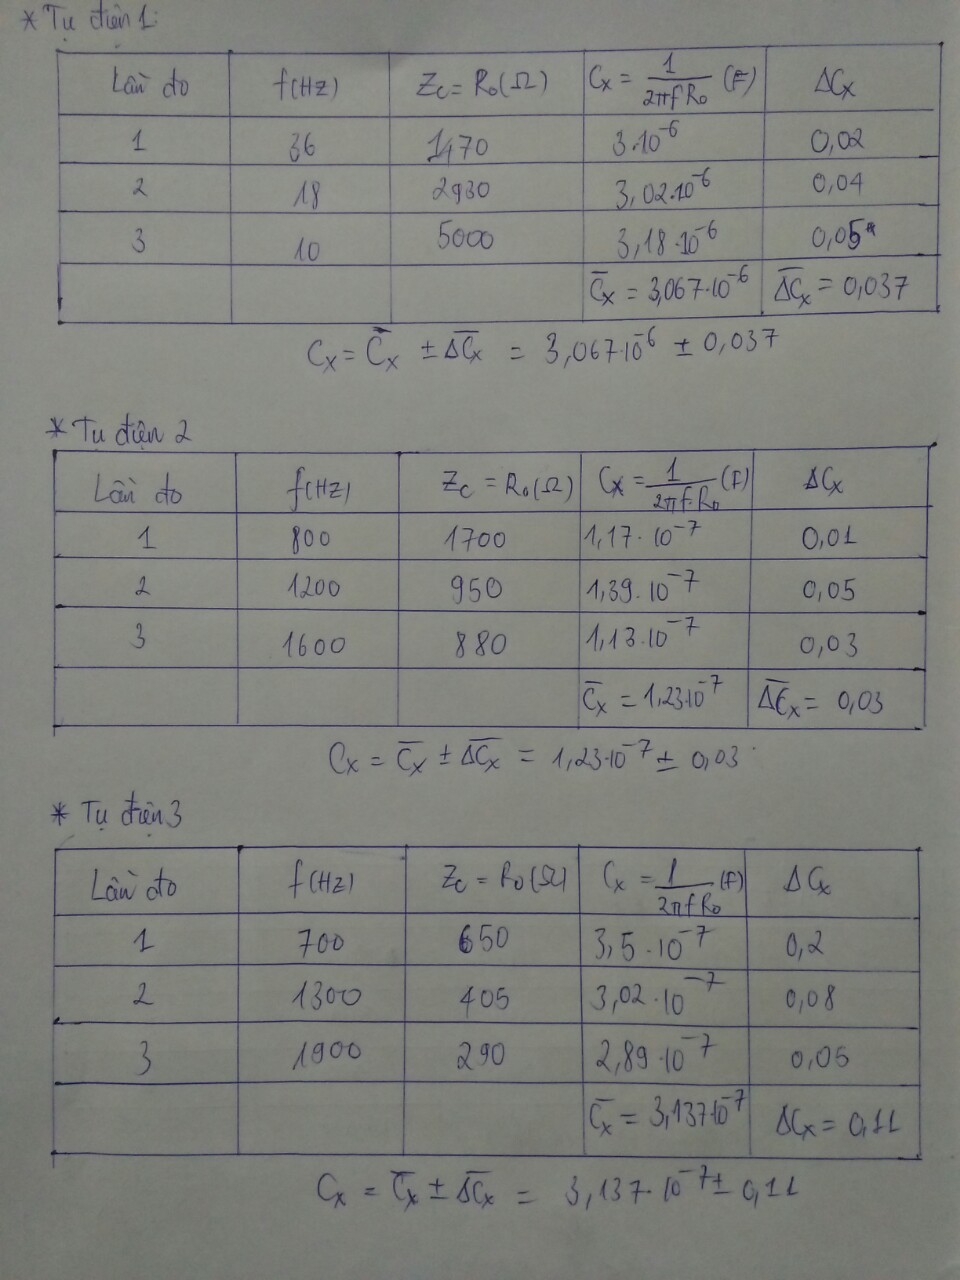 * Tụ điện 1:
Lần đo f(Hz) Zc = R₀(Ω) Cx = 1/(2πfR₀) (F) ΔCx
1 36 1470 3.10⁻⁶ 0,02
2 18 2930 3,02.10⁻⁶ 0,04
3 10 5000 3,18.10⁻⁶ 0,05
C̅x = 3,067.10⁻⁶ Δ̅C̅x = 0,037
Cx = C̅x ± Δ̅C̅x = 3,067.10⁻⁶ ± 0,037
* Tụ điện 2
Lần đo f(Hz) Zc = R₀(Ω) Cx = 1/(2πf.R₀) (F) ΔCx
1 800 1700 1,17.10⁻⁷ 0,01
2 1200 950 1,39.10⁻⁷ 0,05
3 1600 880 1,13.10⁻⁷ 0,03
C̅x = 1,23.10⁻⁷ Δ̅C̅x = 0,03
Cx = C̅x ± Δ̅C̅x = 1,23.10⁻⁷ ± 0,03
* Tụ điện 3
Lần đo f(Hz) Zc = R₀(Ω) Cx = 1/(2πfR₀) (F) ΔCx
1 700 650 3,5.10⁻⁷ 0,2
2 1300 405 3,02.10⁻⁷ 0,08
3 1900 290 2,89.10⁻⁷ 0,05
C̅x = 3,137.10⁻⁷ ΔCx = 0,11
Cx = C̅x ± Δ̅C̅x = 3,137.10⁻⁷ ± 0,11